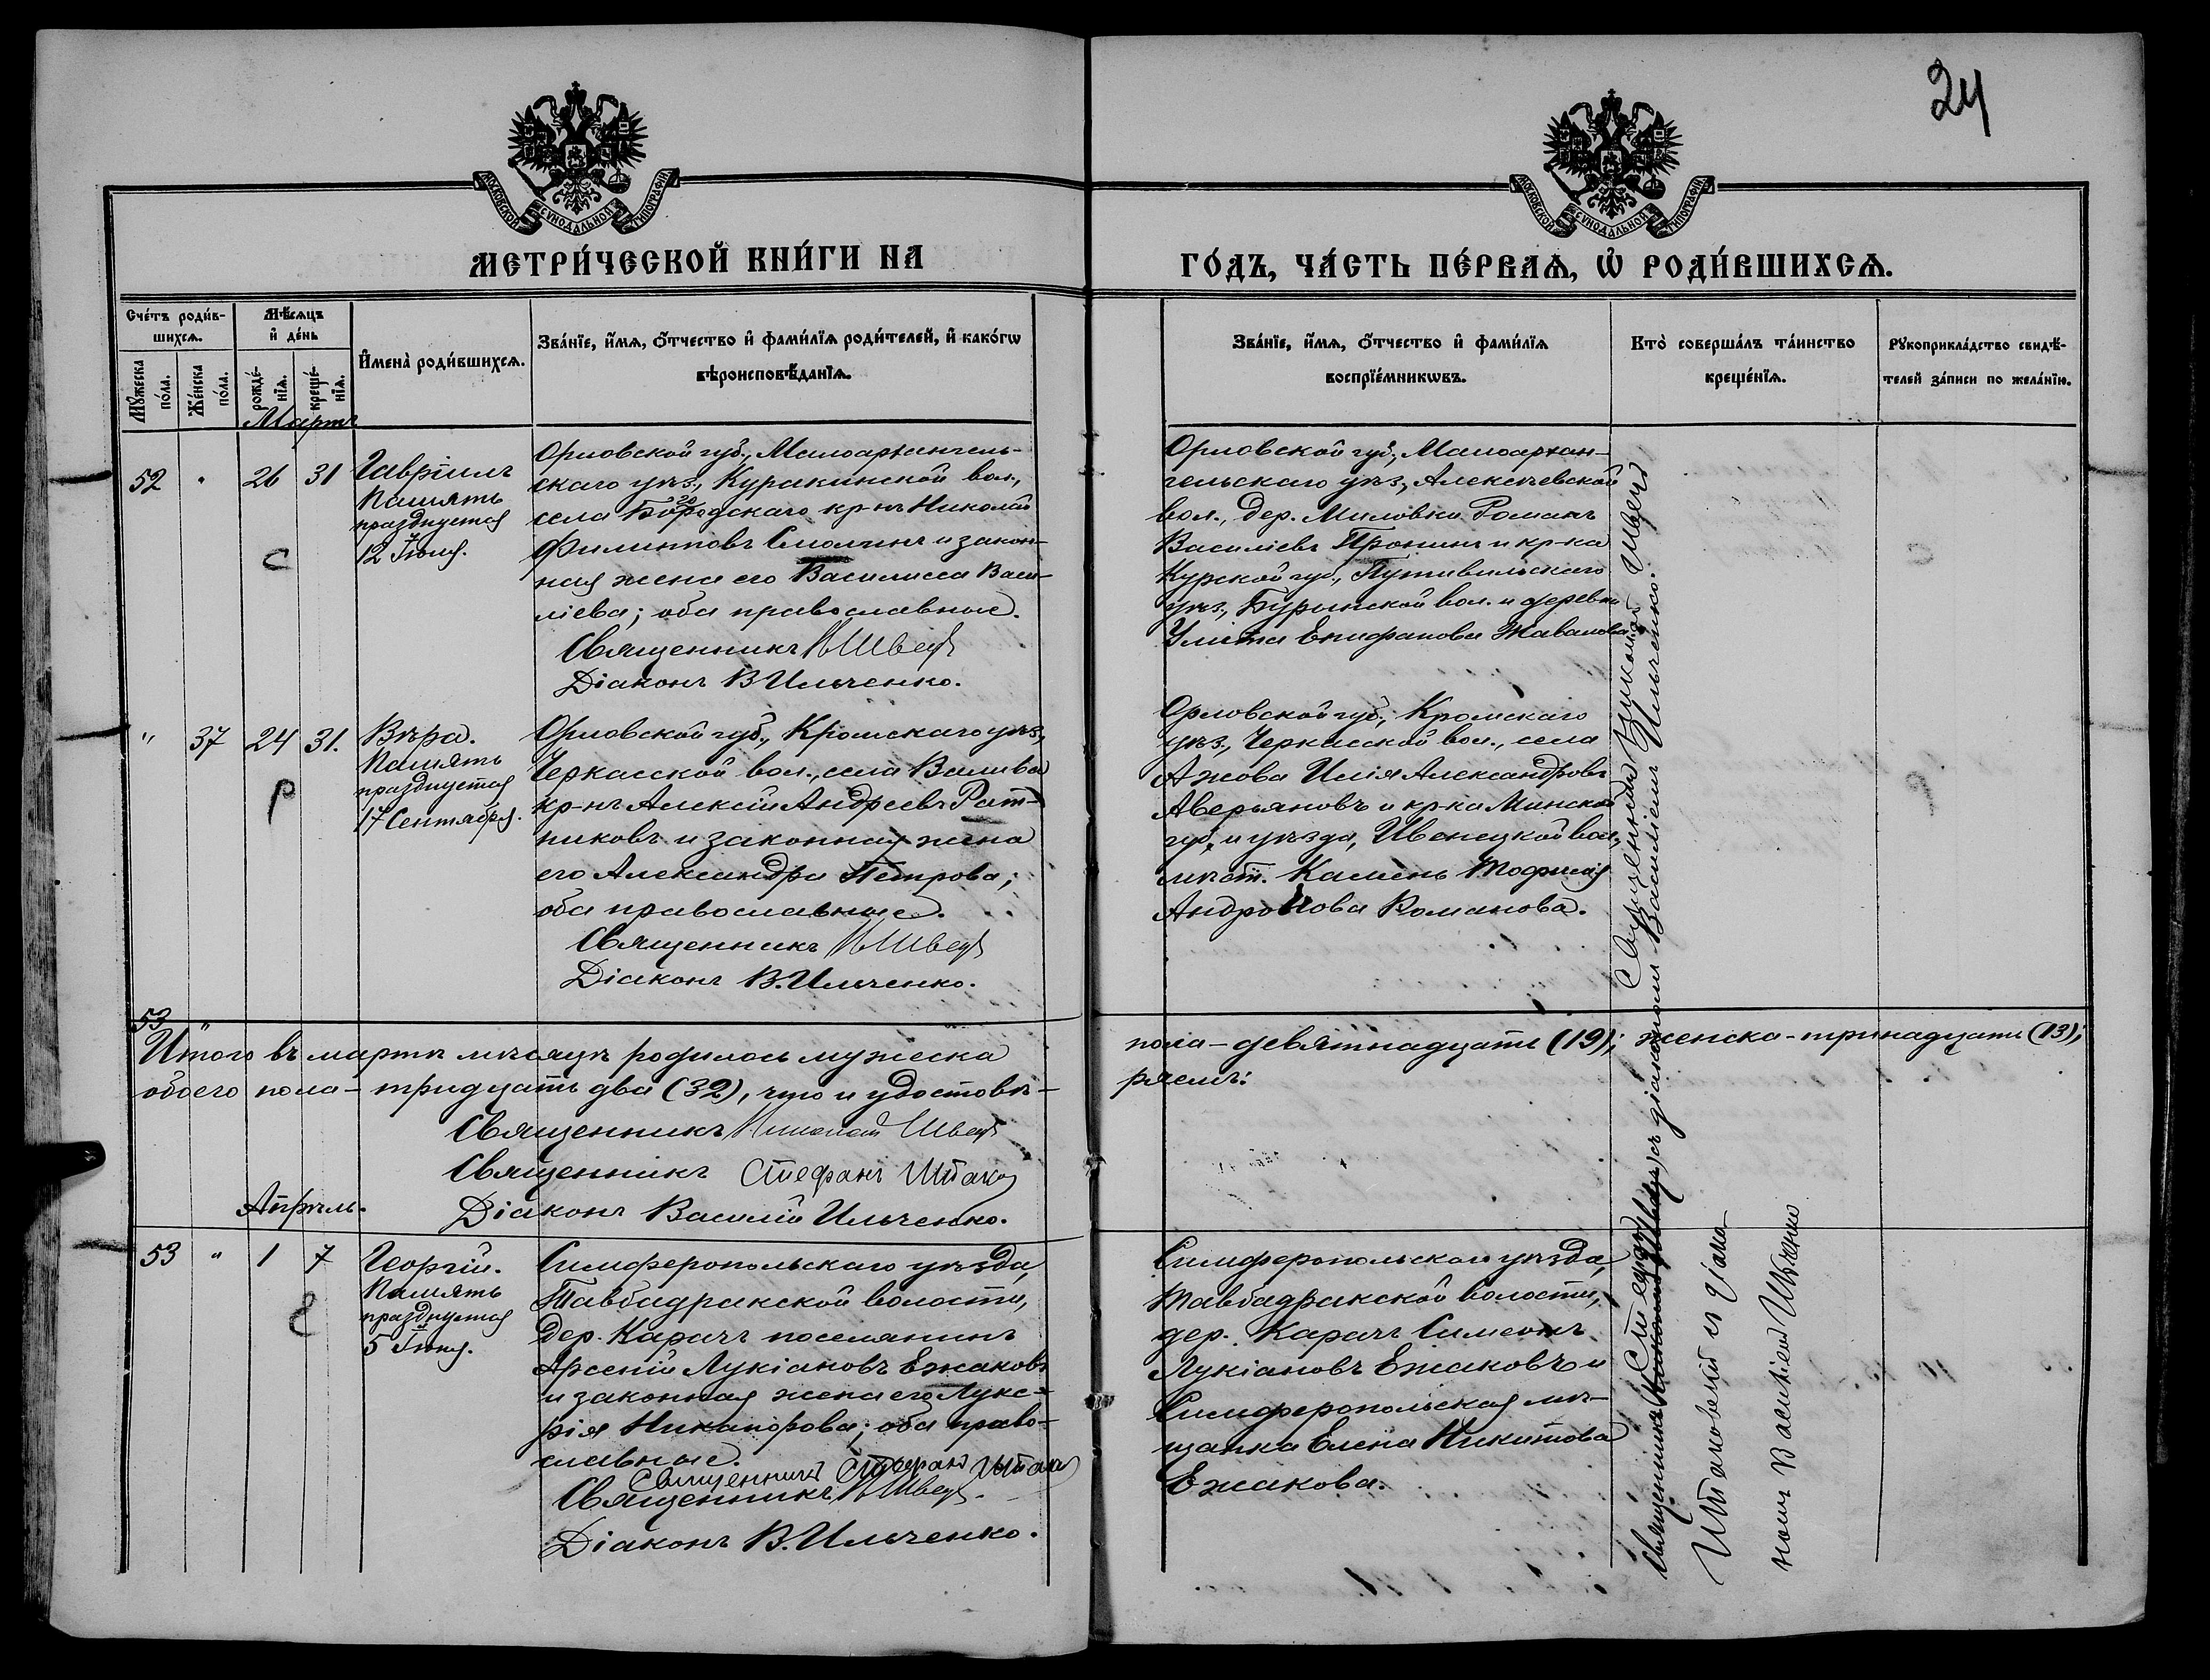 24
МОСКОВСКОЙ СѴНОДАЛЬНОЙ ТИПОГРАФІИ
МОСКОВСКОЙ СѴНОДАЛЬНОЙ ТИПОГРАФІИ
МЕТРИ́ЧЕСКОЙ КНИ́ГИ НА
ГО́ДЪ, ЧА́СТЬ ПЕ́РВАѦ, Ѡ҆ РОДИ́ВШИХСѦ.
Сче́тъ роди́в-
шихсѧ.
Мꙋ́жеска по́ла.
Же́нска по́ла.
Мѣ́сѧцъ
и҆ де́нь
рожде́-
нїѧ.
креще́-
нїѧ.
И҆мена̀ роди́вшихсѧ.
Зва́нїе, и҆́мѧ, ѻ҆́тчество и҆ фами́лїѧ роди́телей, и҆ како́гѡ
вѣроисповѣ́данїѧ.
Зва́нїе, и҆́мѧ, ѻ҆́тчество и҆ фами́лїѧ
воспрїе́мникѡвъ.
Кто̀ соверша́лъ та́инство
креще́нїѧ.
Рꙋкоприкла́дство свидѣ́-
телей за́писи по жела́нїю.
Мартъ
52 " 26 31
Гавріилъ
Память
празднуется
12 Іюля.
с
Орловской губ., Малоархангель-
скаго уѣз., Куракинской вол.,
села Городскаго кр-нъ Николай
Филипповъ Смолчинъ и закон-
ная жена его Василисса Васи-
ліева; оба православные.
Священникъ Н Швецъ
Діаконъ В Ильченко.
Орловской губ., Малоархан-
гельскаго уѣз., Алексѣевской
вол., дер. Миловки Романъ
Василіевъ Пронинъ и кр-ка
Курской губ., Путивльскаго
уѣз., Бурынской вол. и деревни
Улита Епифанова Жавалова
" 37 24 31.
Вѣра.
Память
празднуется
17 Сентября.
р
Орловской губ., Кромскаго уѣз.,
Черкасской вол., села
кр-нъ Алексій Андреевъ Рат-
никовъ и законная жена
его Александра Петрова;
оба православные.
Священникъ Н Швецъ
Діаконъ В. Ильченко.
Орловской губ., Кромскаго
уѣз., Черкасской вол., села
Ажова Илія Александровъ
Аверьяновъ и кр-ка Минской
губ. и уѣзда, Ивенецкой вол.,
мѣст. Камень Тофилія
Андронова Романова.
53 "
Итого въ мартѣ мѣсяцѣ родилось мужеска
пола – девятнадцать (19); женска – тринадцать (13);
обоего пола – тридцать два (32), что и удостовѣ-
ряемъ:
Священникъ Николай Швецъ
Священникъ Стефанъ
Діаконъ Василій Ильченко.
Апрѣль.
53 " 1 7
Георгій.
Память
празднуется
5 Іюня.
Симферопольскаго уѣзда,
Тавбадракской волости,
дер. Карачъ поселянинъ
Арсеній Лукіановъ Ежаковъ
и законная жена его Луке-
рія Никанорова; оба право-
славные.
Священникъ Стефанъ
Священникъ Н Швецъ.
Діаконъ В. Ильченко.
Симферопольскаго уѣзда,
Тавбадракской волости,
дер. Карачъ Симеонъ
Лукіановъ Ежаковъ и
Симферопольская мѣ-
щанка Елена Никитова
Ежакова.
Священникъ Николай Швецъ
съ діакономъ Василіемъ Ильченко.
Священникъ Стефанъ
и діако-
номъ Василіемъ Ильченко